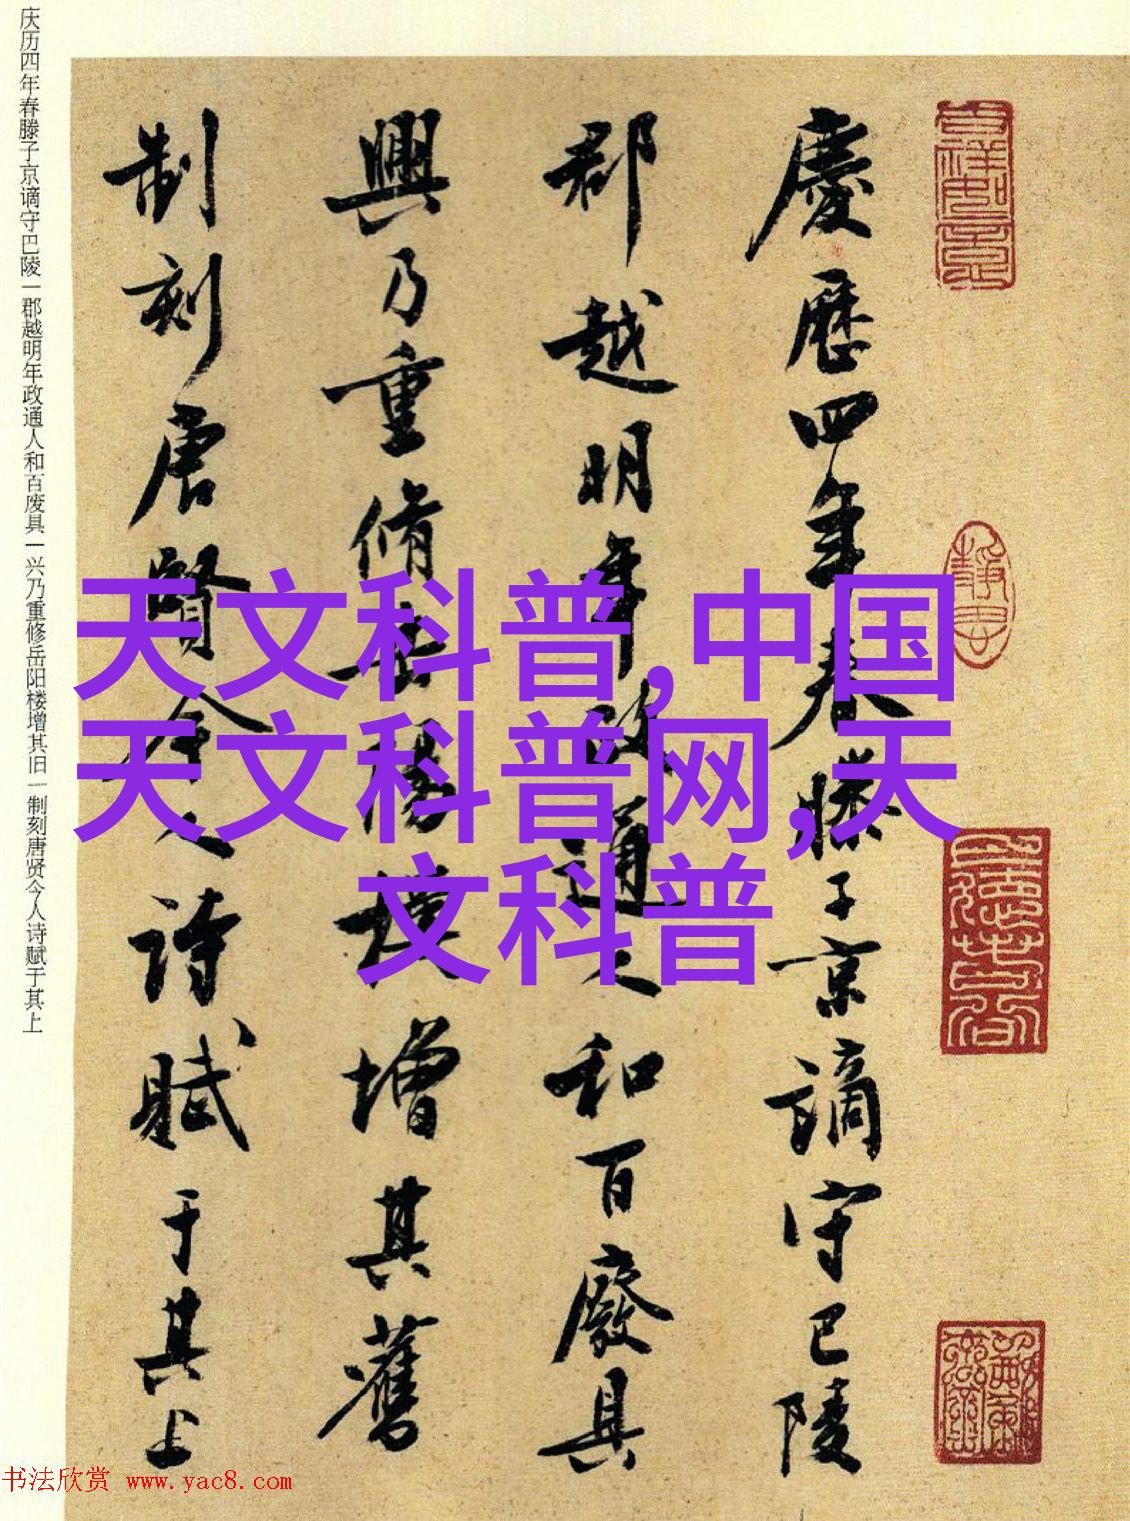 慶歷四年春滕子京謫守巴陵
郡越明年政通人和百廢具
興乃重脩岳陽樓增其舊
制刻唐賢今人詩賦于其上
庆历四年春滕子京谪守巴陵一郡越明年政通人和百废具一兴乃重修岳阳楼增其旧一制刻唐贤今人诗赋于其上
天文科普,中国
天文科普网,天
文科普
书法欣赏 www.yac8.com